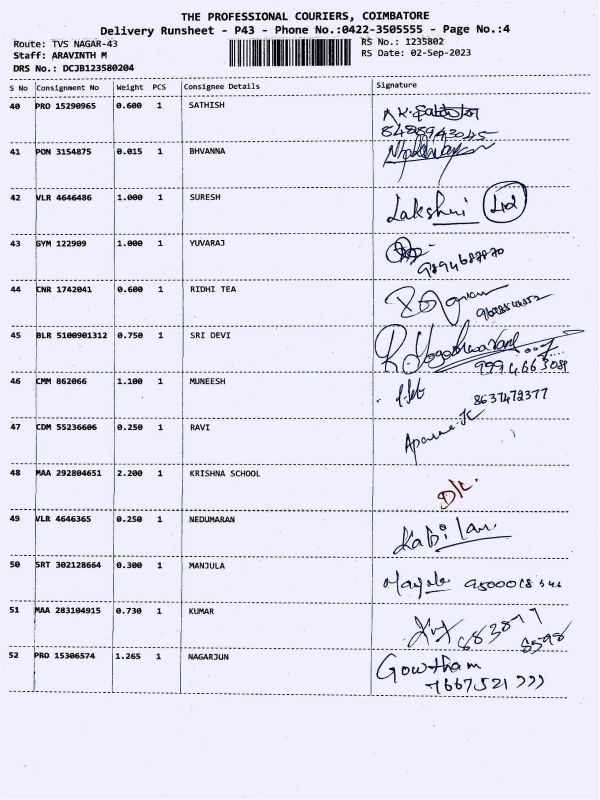 THE PROFESSIONAL COURIERS, COIMBATORE
Delivery Runsheet - P43 - Phone No.:0422-3505555 - Page No.:4
Route: TVS NAGAR-43 RS No.: 1235802
Staff: ARAVINTH M RS Date: 02-Sep-2023
DRS No.: DCJB123580204
S No Consignment No Weight PCS Consignee Details Signature
40 PRO 15290965 0.600 1 SATHISH
41 PON 3154875 0.015 1 BHVANNA
42 VLR 4646486 1.000 1 SURESH Lakshmi
43 GYM 122909 1.000 1 YUVARAJ 9894687870
44 CNR 1742041 0.600 1 RIDHI TEA
45 BLR 5100901312 0.750 1 SRI DEVI
46 CMM 862066 1.100 1 MUNEESH 8637472377
47 CDM 55236606 0.250 1 RAVI
48 MAA 292804651 2.200 1 KRISHNA SCHOOL D/L.
49 VLR 4646365 0.250 1 NEDUMARAN Kabilan.
50 SRT 302128664 0.300 1 MANJULA Manjula
51 MAA 283104915 0.730 1 KUMAR
52 PRO 15306574 1.265 1 NAGARJUN Gowtham
7667521777